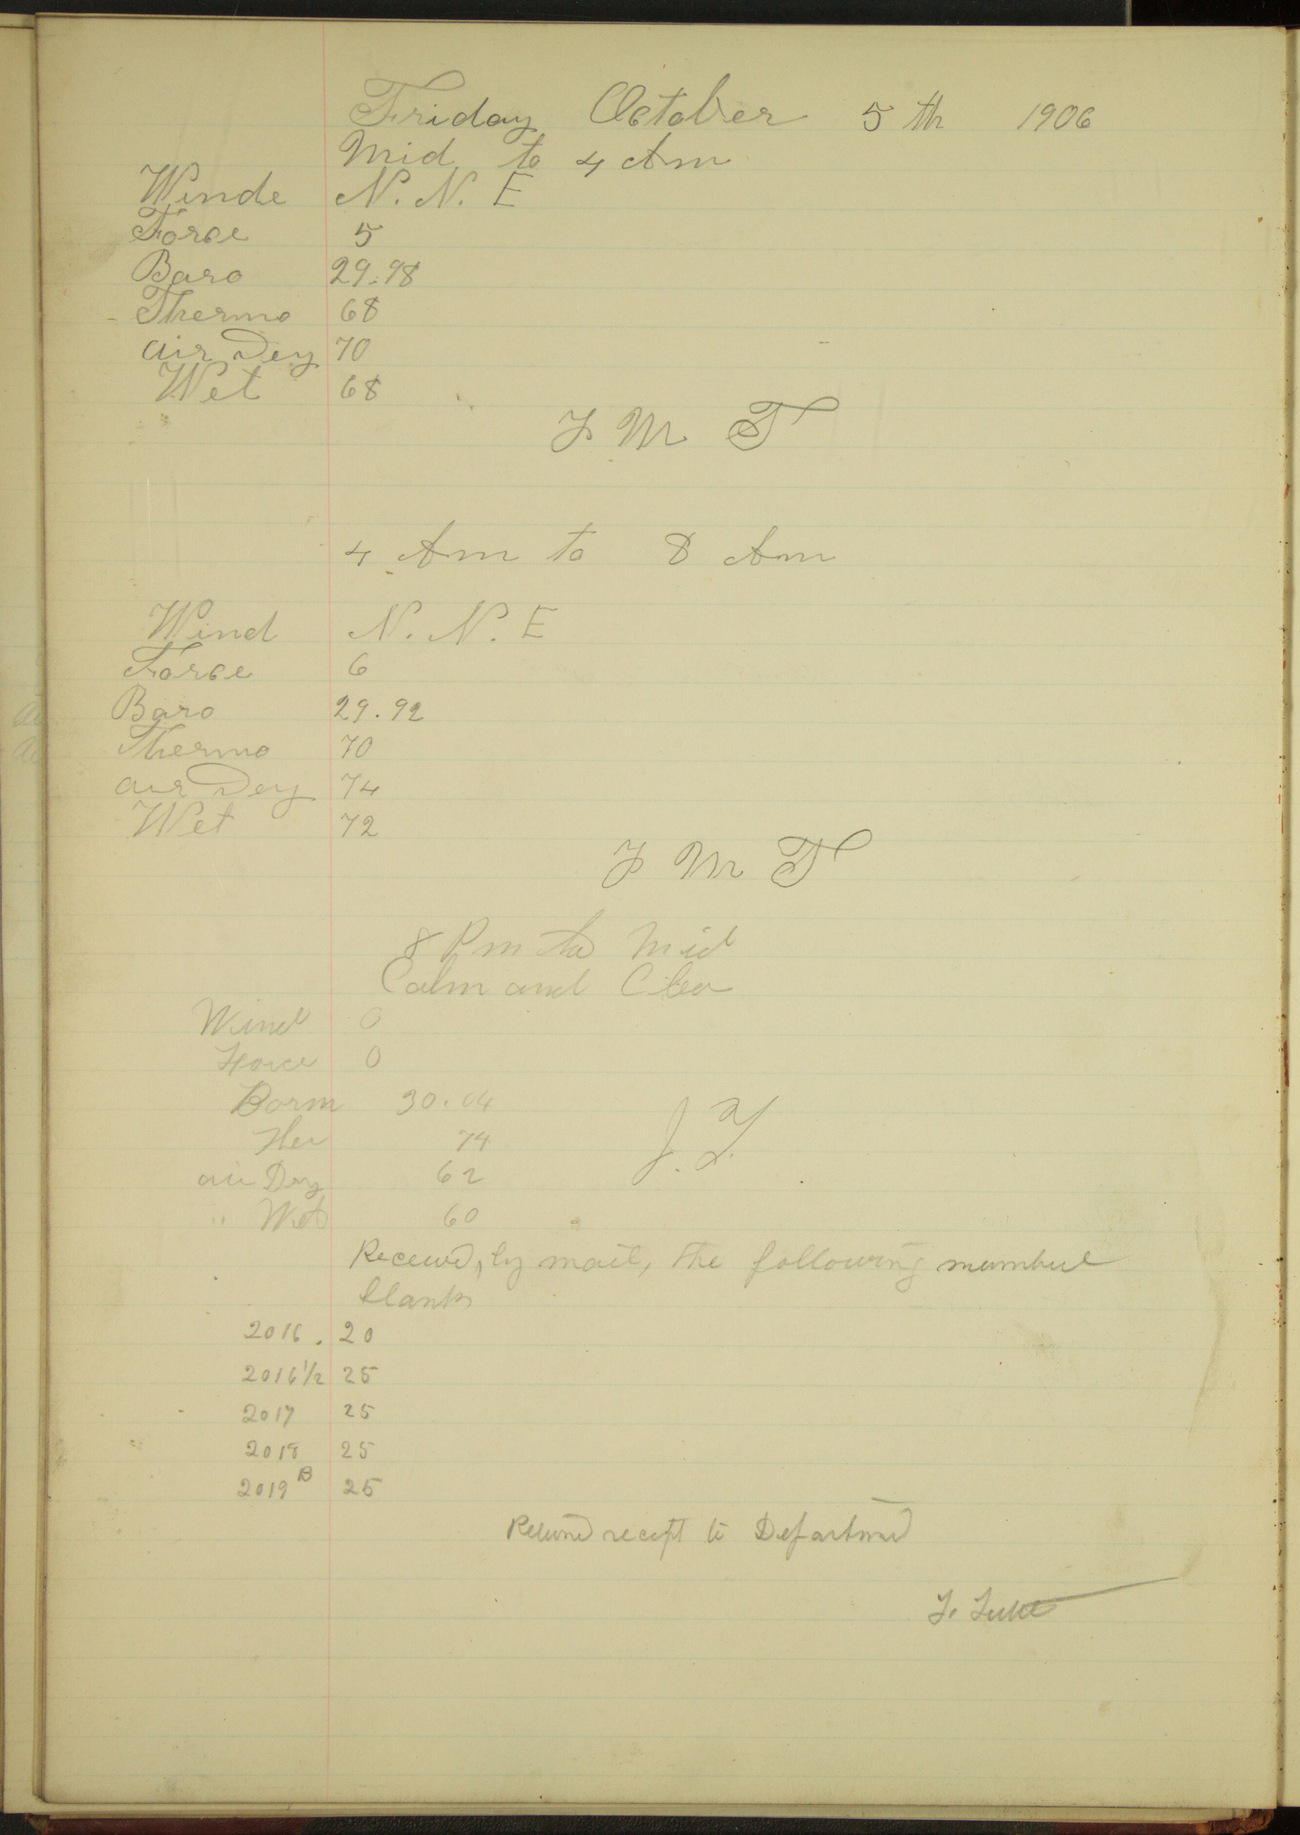 Friday October 5th 1906
Mid to 4 Am
Winde N. N. E
Force 5
Baro 29.98
Thermo 68
air Dry 70
Wet 68
F M T
4 Am to 8 Am
Wind N. N. E
Force 6
Baro 29.92
Thermo 70
air Dry 74
Wet 72
F M T
8 Pm to Mid
Calm and Clear
Wind 0
Force 0
Barm 30.04
Ther 74
air Dry 62
" Wet 60
J. Y.
Received, by mail, the following number
blanks
2016. 20
2016 1/2 25
2017 25
2018 25
2019 B 25
Returned receipt to Department